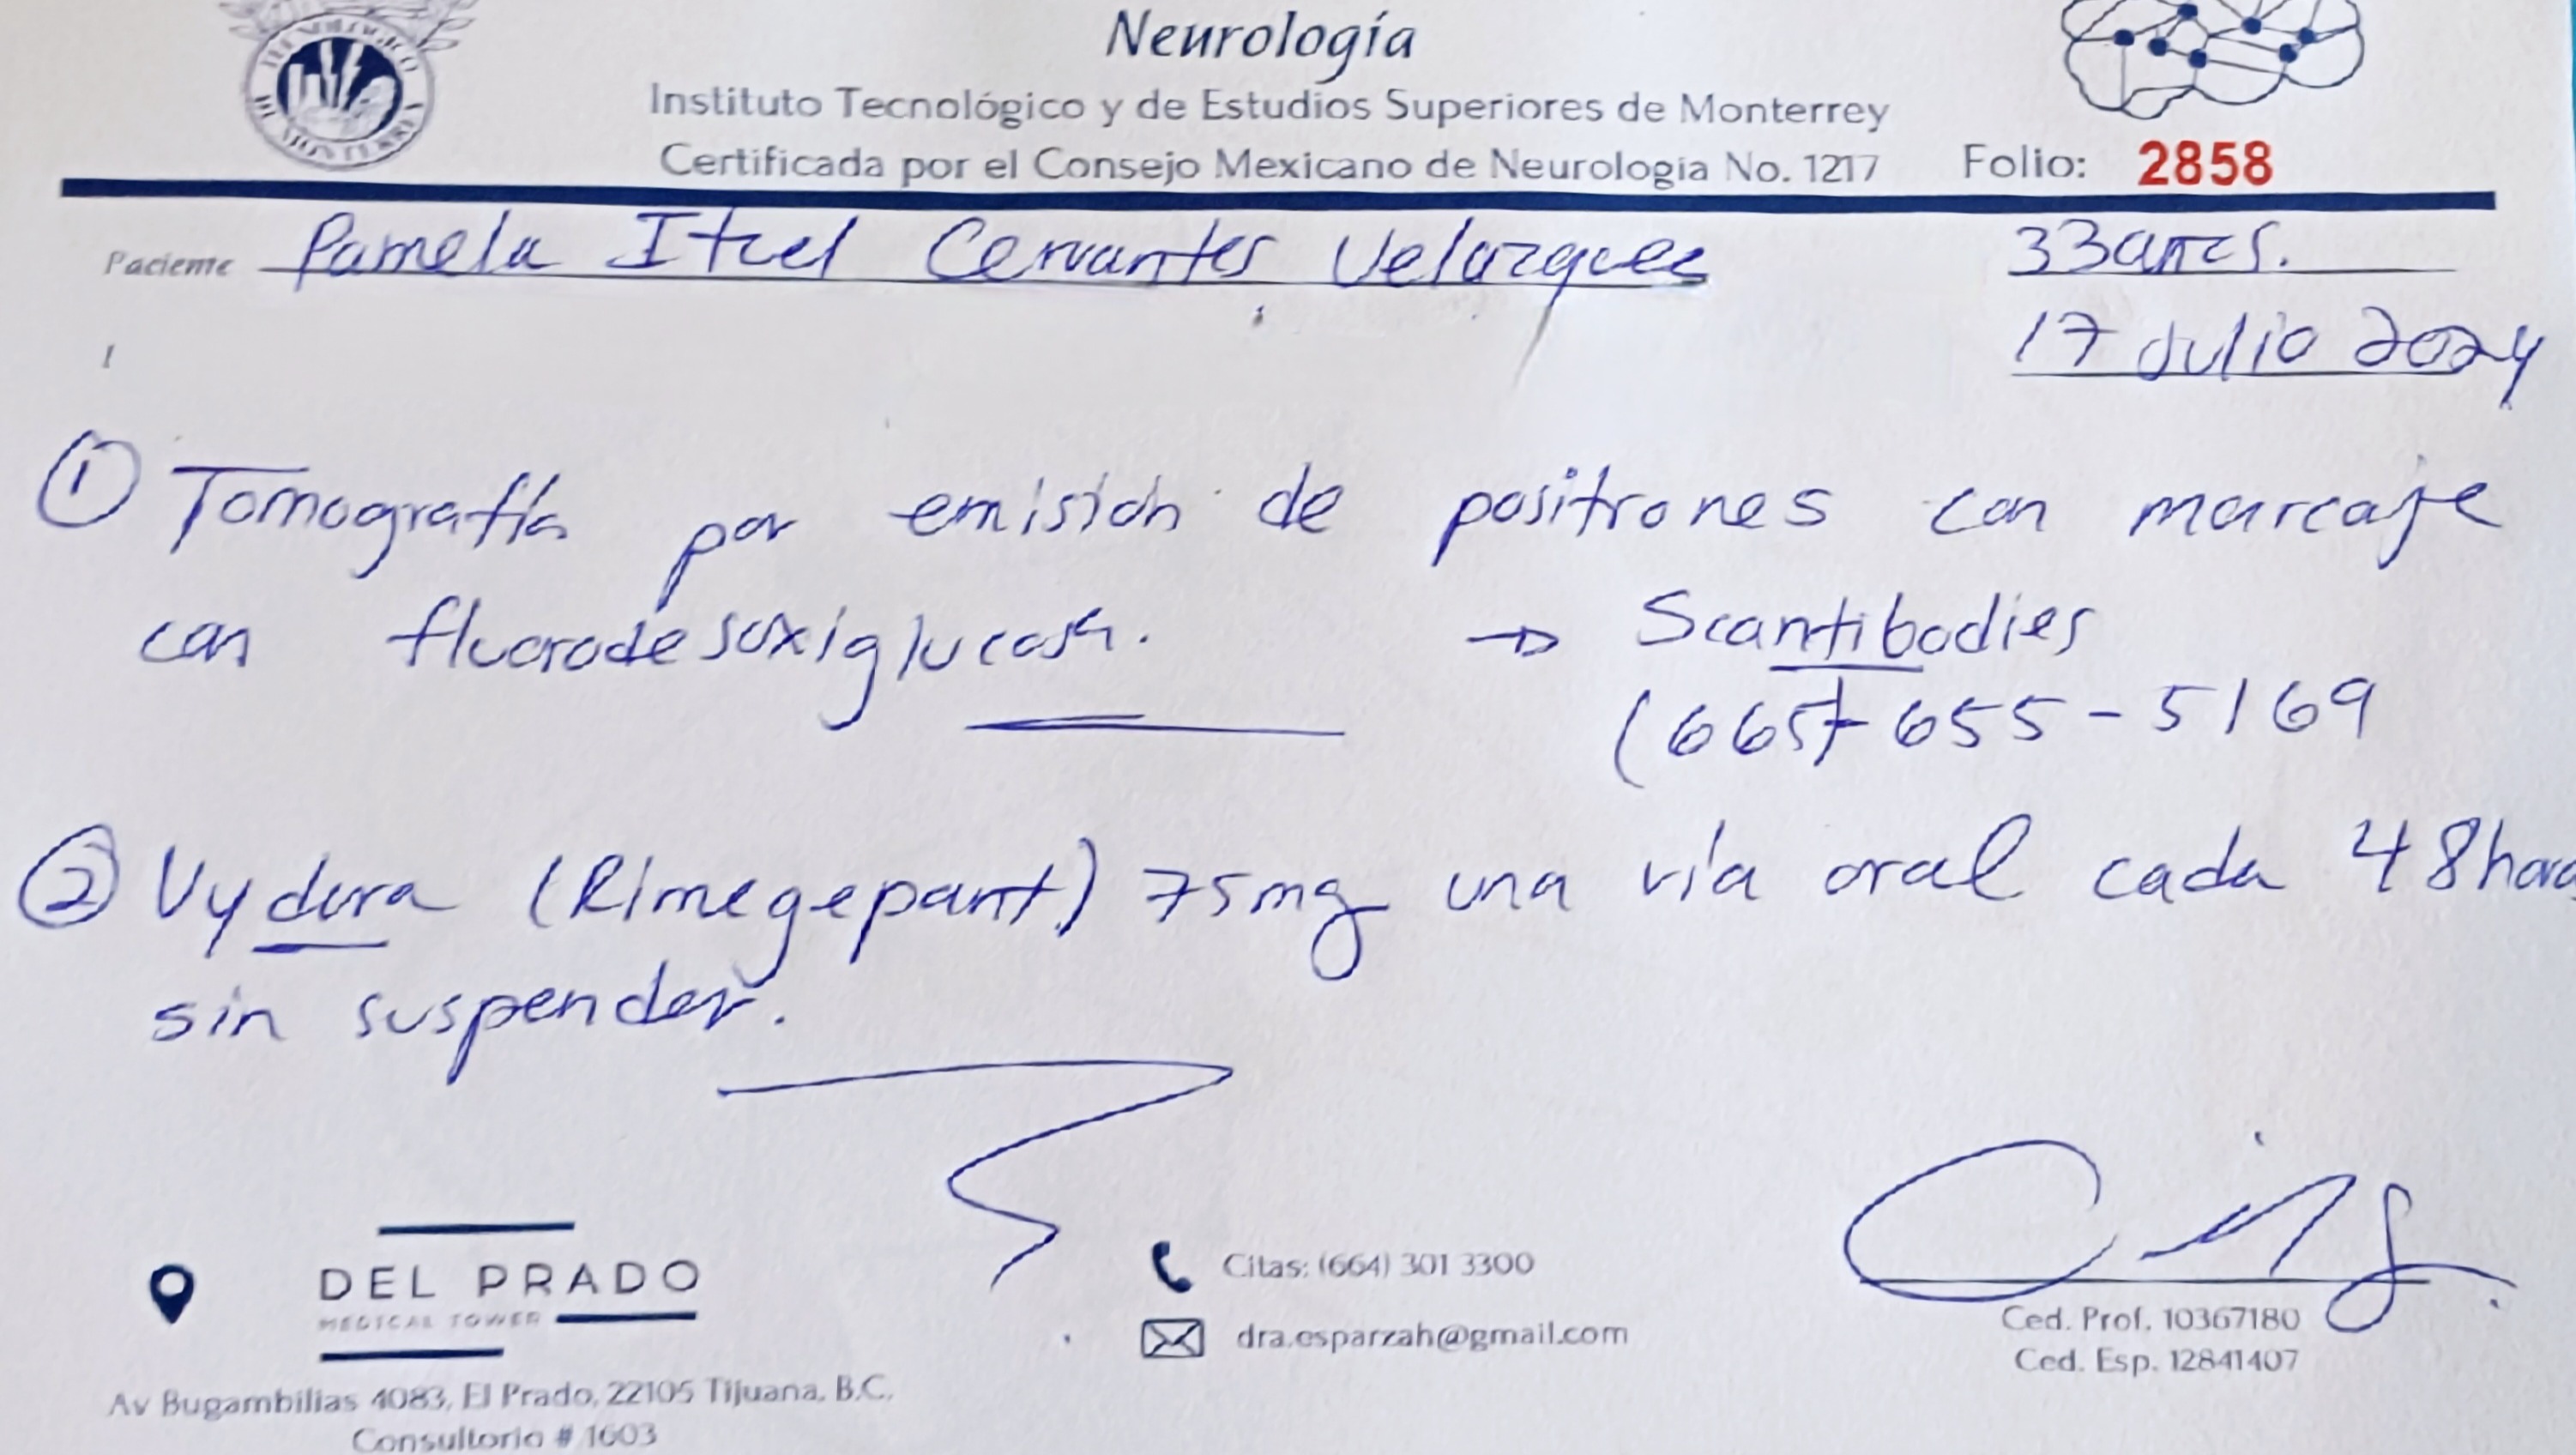 Neurología
Instituto Tecnológico y de Estudios Superiores de Monterrey
Certificada por el Consejo Mexicano de Neurología No. 1217
Folio: 2858
Paciente Pamela Itzel Cervantes Velazquez 33 años.
17 Julio 2024
① Tomografía por emisión de positrones con marcaje
con fluorodesoxiglucosa. → Scantibodies
(665)-655-5169
② Vydura (Rimegepant) 75mg una vía oral cada 48horas
sin suspender.
DEL PRADO
MEDICAL TOWER
Citas: (664) 301 3300
dra.esparzah@gmail.com
Ced. Prof. 10367180
Ced. Esp. 12841407
Av Bugambilias 4083, El Prado, 22105 Tijuana, B.C.
Consultorio # 1603